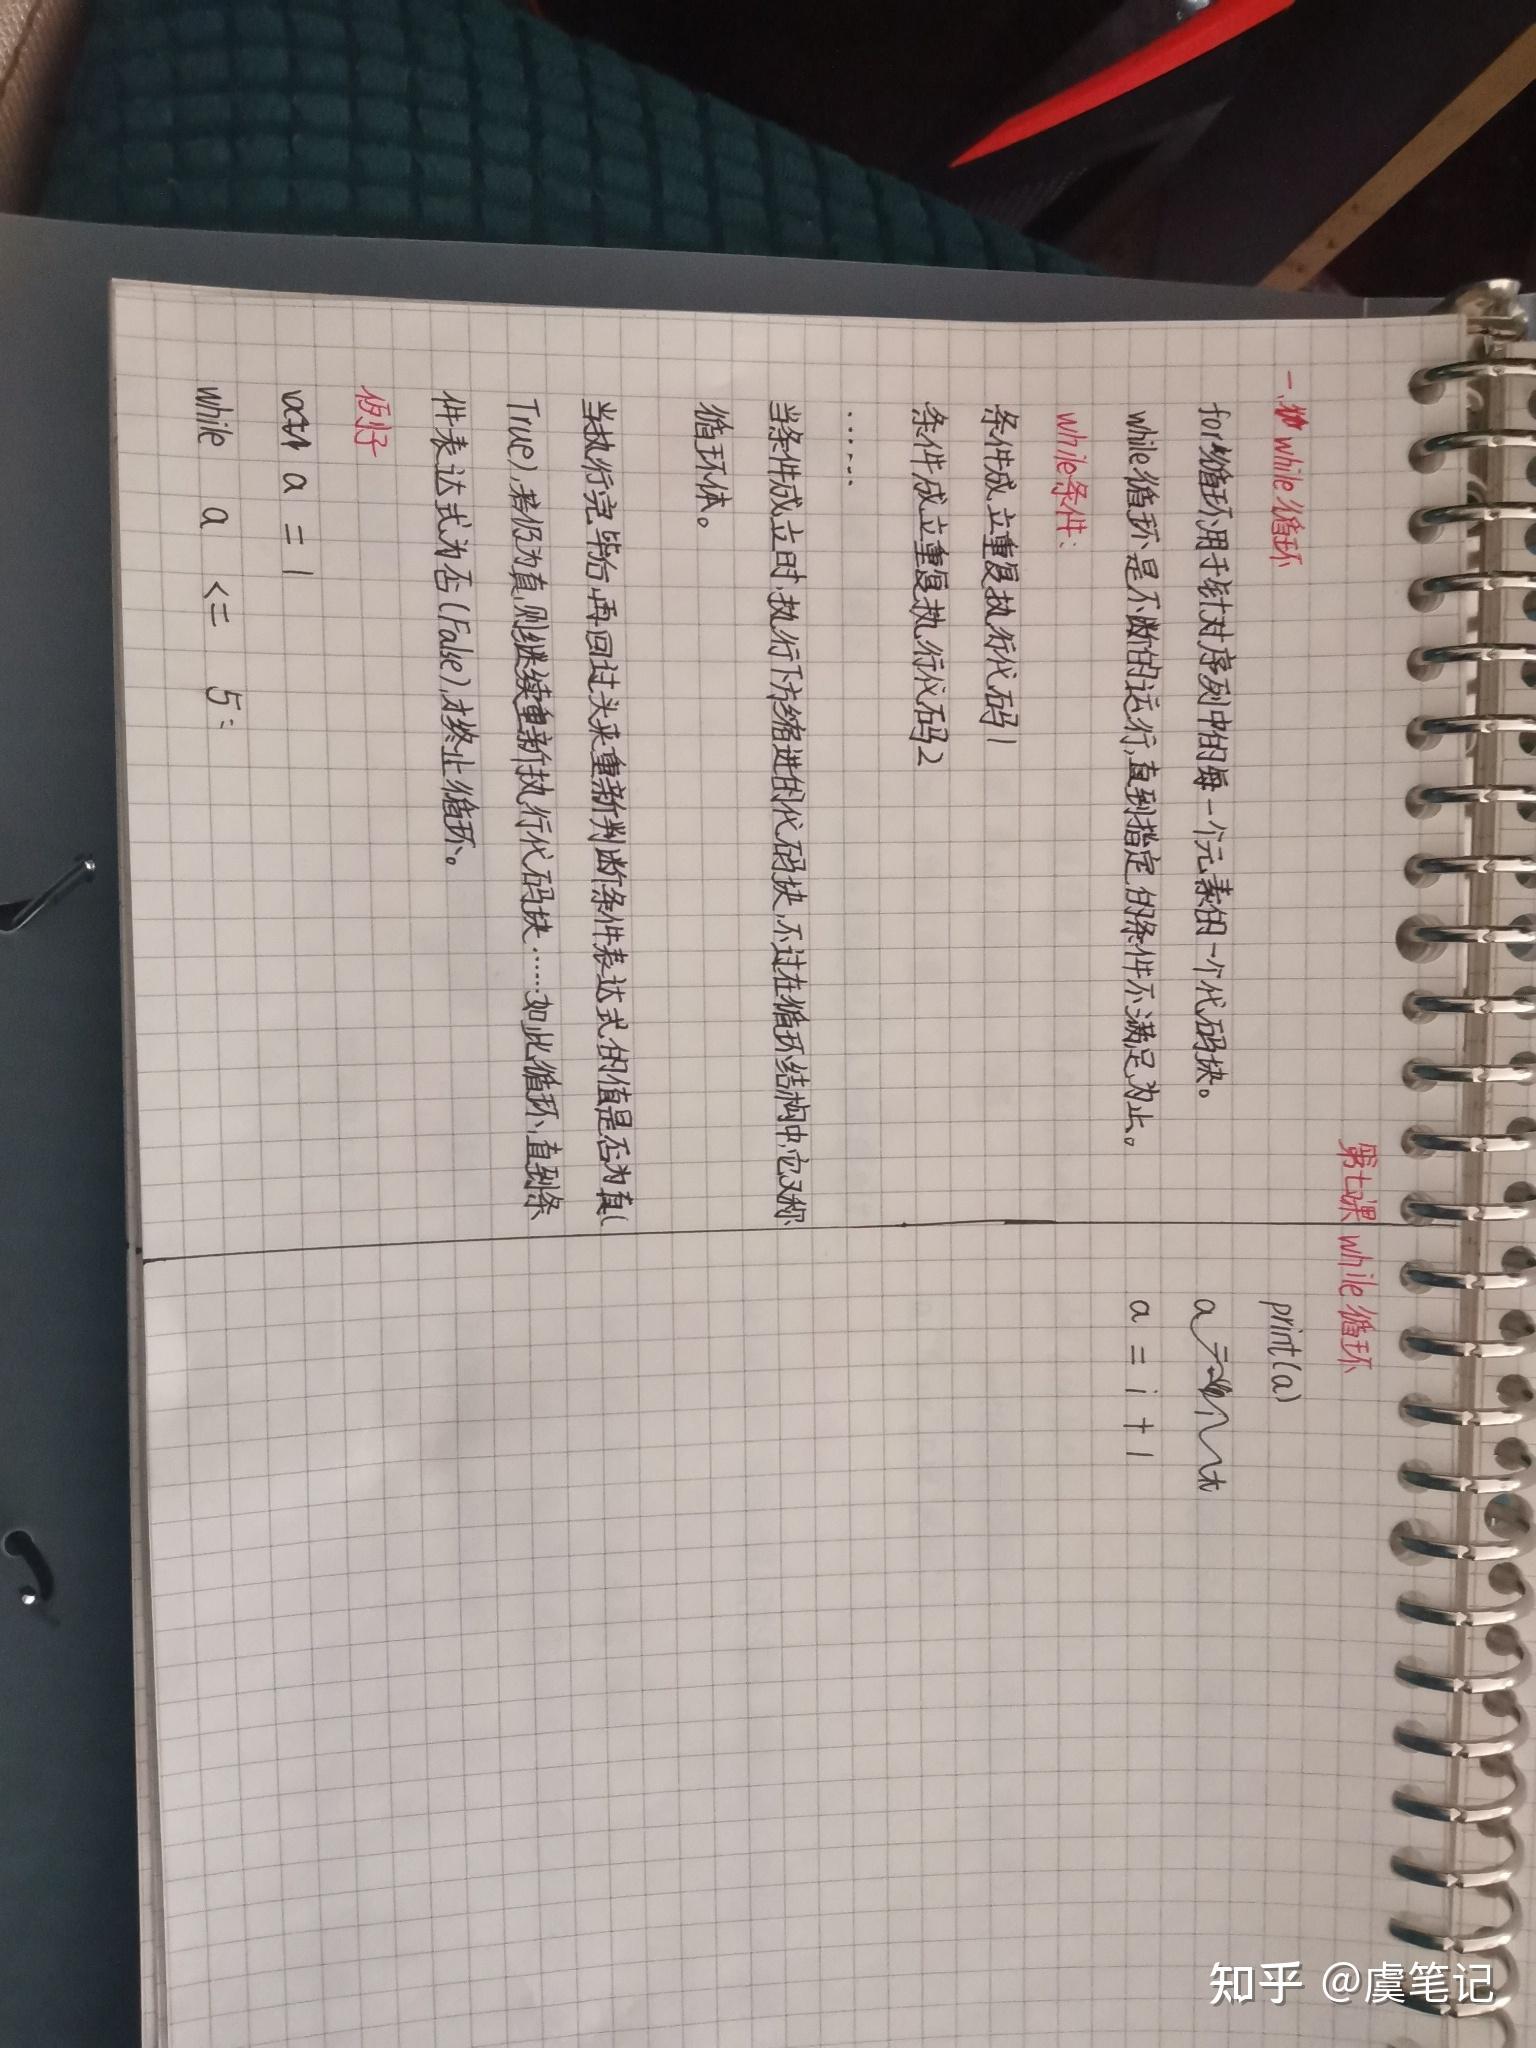 第七课 while循环
一、while循环
for循环用于针对序列中的每一个元素的一个代码块。
while循环是不断的运行,直到指定的条件不满足为止。
while条件:
条件成立重复执行代码1
条件成立重复执行代码2
……
当条件成立时,执行下方缩进的代码块,不过在循环结构中,它又称
循环体。
当执行完毕后,再回过头来重新判断条件表达式的值是否为真(
True),若仍为真,则继续重新执行代码块……如此循环,直到条
件表达式为否(False),才终止循环。
例子
a = 1
while a <= 5:
print(a)
a = i + 1
知乎 @虞笔记